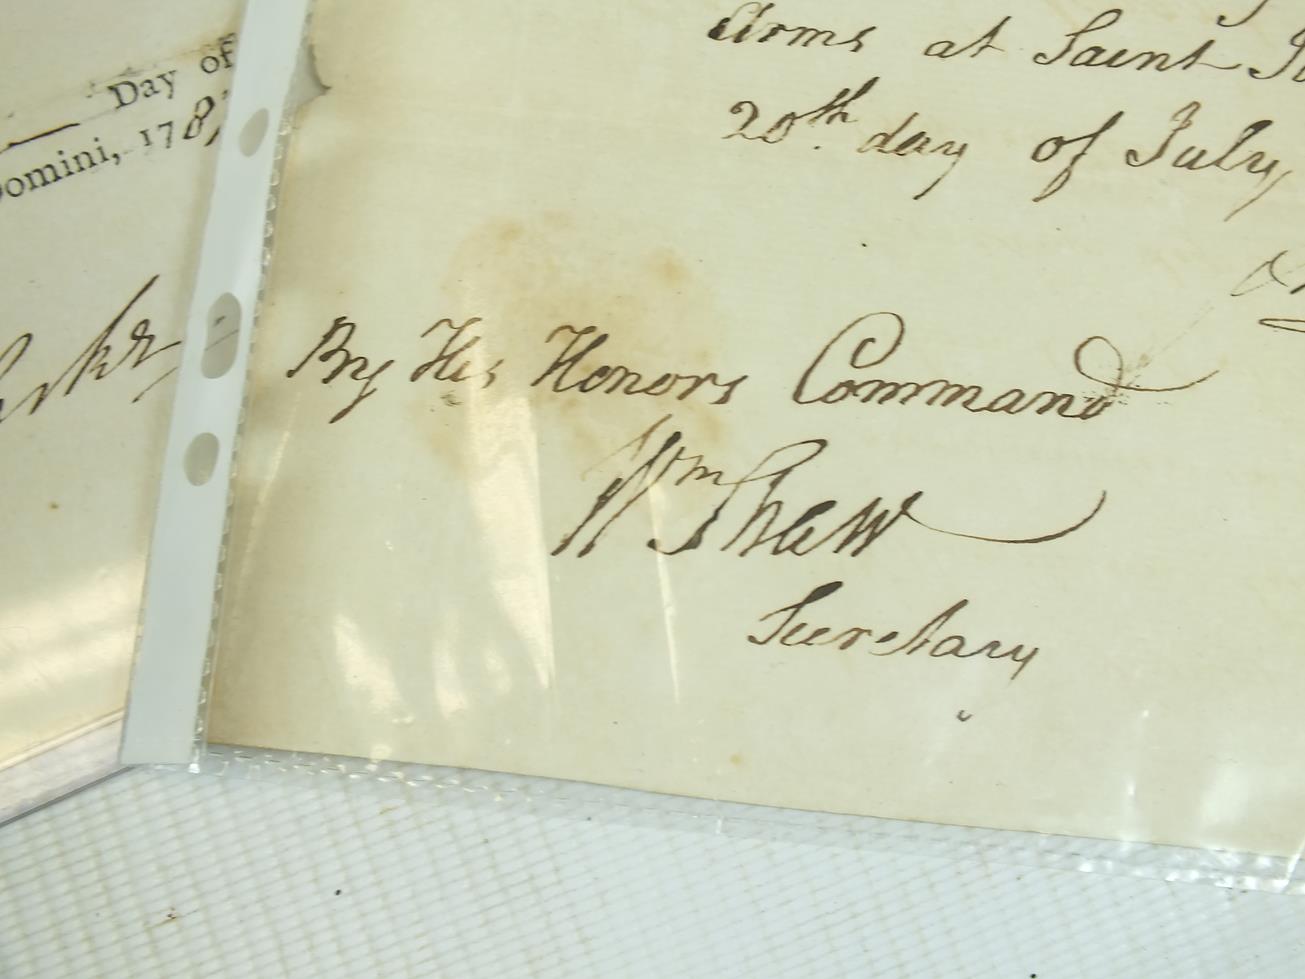 Day of
Domini, 178
Arms at Saint
20th day of July
By His Honors Command
Wm Shaw
Secretary